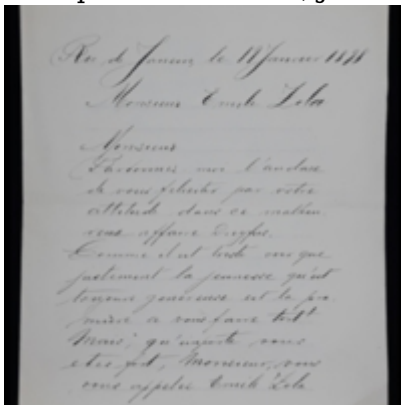 Rio de Janeiro le 18 Janvier 1898
Monsieur Emile Zola
Monsieur
Pardonnez moi l'audace
de vous féliciter par votre
attitude dans ce malheu
reux affaire Dreyfus.
Comme il est triste que
justement la jeunesse qu'est
toujours généreuse est la pre
mière a vous faire tort!
Mais, qu'importe vous
etes fort, Monsieur, vous
vous appelez Emile Zola